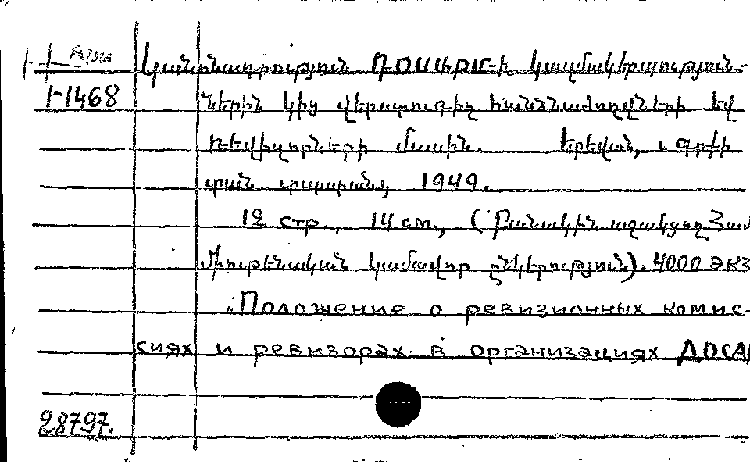 Կանոնադրություն ԴՕՍԱՐՄ-ի կազմակերպություն-
I-1468 ներին կից վերստուգիչ հանձնաժողովների եվ
ռեվիզորների մասին. Երեվան,
տան տպարան, 1949.
12 стр., 14 см., (Բանակին աջակցող Հա
միութենական կամավոր ընկերություն). 4000 экз
„Положение о ревизионных комис-
сиях и ревизорах в организациях ДОСА
28797.